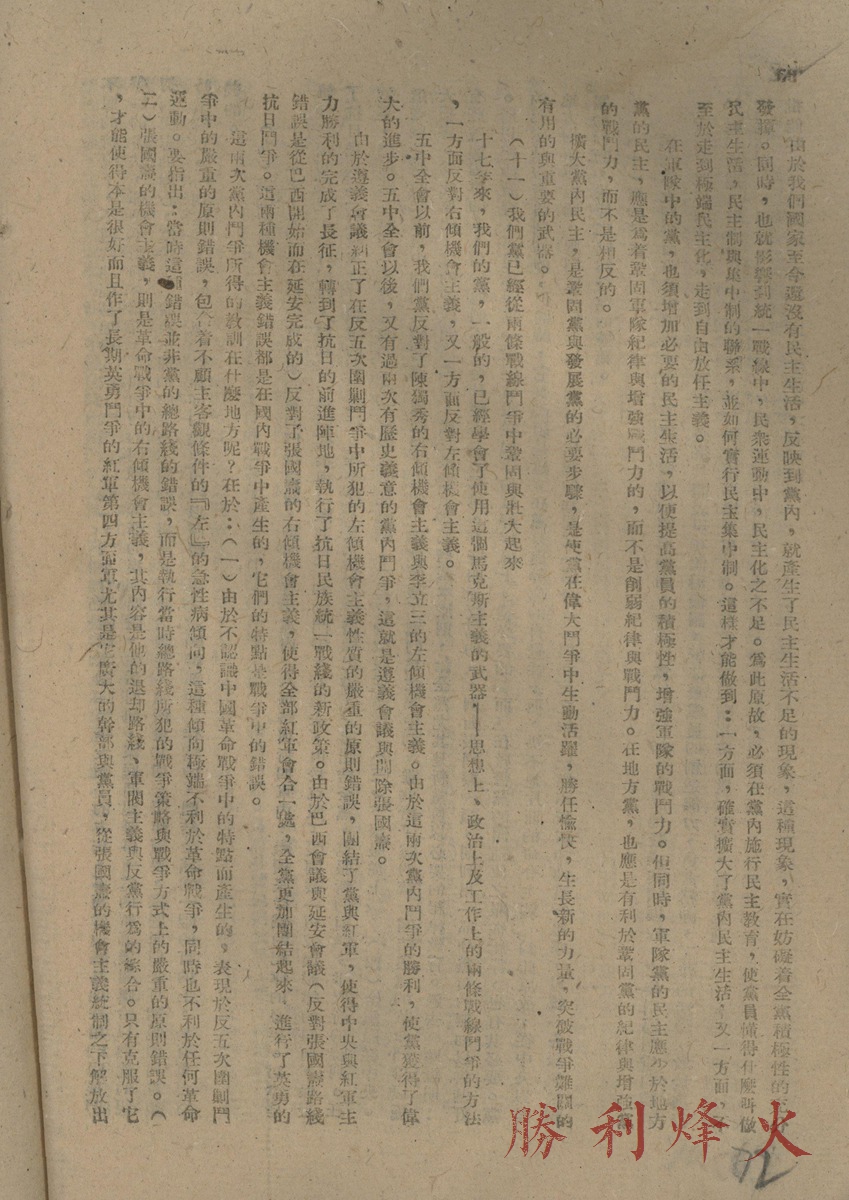 由於我們國家至今還沒有民主生活，反映到黨內，就產生了民主生活不足的現象，這種現象，實在妨礙着全黨積極性的
發揮。同時，也就影響到統一戰線中，民衆運動中，民主化之不足。爲此原故，必須在黨內施行民主教育，使黨員懂得什麼叫做
民主生活，民主制與集中制的聯系，並如何實行民主集中制。這樣才能做到：一方面，確實擴大了黨內民主生活，又一方面，
至於走到極端民主化，走到自由放任主義。
在軍隊中的黨，也須增加必要的民主生活，以便提高黨員的積極性，增強軍隊的戰鬥力。但同時，軍隊黨的民主應少於地方
黨的民主，應是爲着鞏固軍隊紀律與增強戰鬥力的，而不是削弱紀律與戰鬥力。在地方黨，也應是有利於鞏固黨的紀律與增強黨
的戰鬥力，而不是相反的。
擴大黨內民主，是鞏固黨與發展黨的必要步驟，是使黨在偉大鬥爭中生動活躍，勝任愉快，生長新的力量，突破戰爭難關的
有用的與重要的武器。
（十一）我們黨已經從兩條戰線鬥爭中鞏固與壯大起來
十七年來，我們的黨，一般的，已經學會了使用這個馬克斯主義的武器——思想上、政治上及工作上的兩條戰線鬥爭的方法
，一方面反對右傾機會主義，又一方面反對左傾機會主義。
五中全會以前，我們黨反對了陳獨秀的右傾機會主義與李立三的左傾機會主義。由於這兩次黨內鬥爭的勝利，使黨獲得了偉
大的進步。五中全會以後，又有過兩次有歷史義意的黨內鬥爭，這就是遵義會議與開除張國燾。
由於遵義會議糾正了在反五次圍剿鬥爭中所犯的左傾機會主義性質的嚴重的原則錯誤，團結了黨與紅軍，使得中央與紅軍主
力勝利的完成了長征，轉到了抗日的前進陣地，執行了抗日民族統一戰綫的新政策。由於巴西會議與延安會議（反對張國燾路綫
錯誤是從巴西開始而在延安完成的）反對了張國燾的右傾機會主義，使得全部紅軍會合一處，全黨更加團結起來，進行了英勇的
抗日鬥爭。這兩種機會主義錯誤都是在國內戰爭中產生的，它們的特點是戰爭中的錯誤。
這兩次黨內鬥爭所得的教訓在什麼地方呢？在於：（一）由於不認識中國革命戰爭中的特點而產生的，表現於反五次圍剿鬥
爭中的嚴重的原則錯誤，包含着不顧主客觀條件的『左』的急性病傾向，這種傾向極端不利於革命戰爭，同時也不利於任何革命
運動。要指出：當時這種錯誤並非黨的總路綫的錯誤，而是執行當時總路綫所犯的戰爭策略與戰爭方式上的嚴重的原則錯誤。（
二）張國燾的機會主義，則是革命戰爭中的右傾機會主義，其內容是他的退却路綫、軍閥主義與反黨行爲的綜合。只有克服了它
，才能使得本是很好而且作了長期英勇鬥爭的紅軍第四方面軍尤其是它廣大的幹部與黨員，從張國燾的機會主義統制之下解放出
勝利烽火